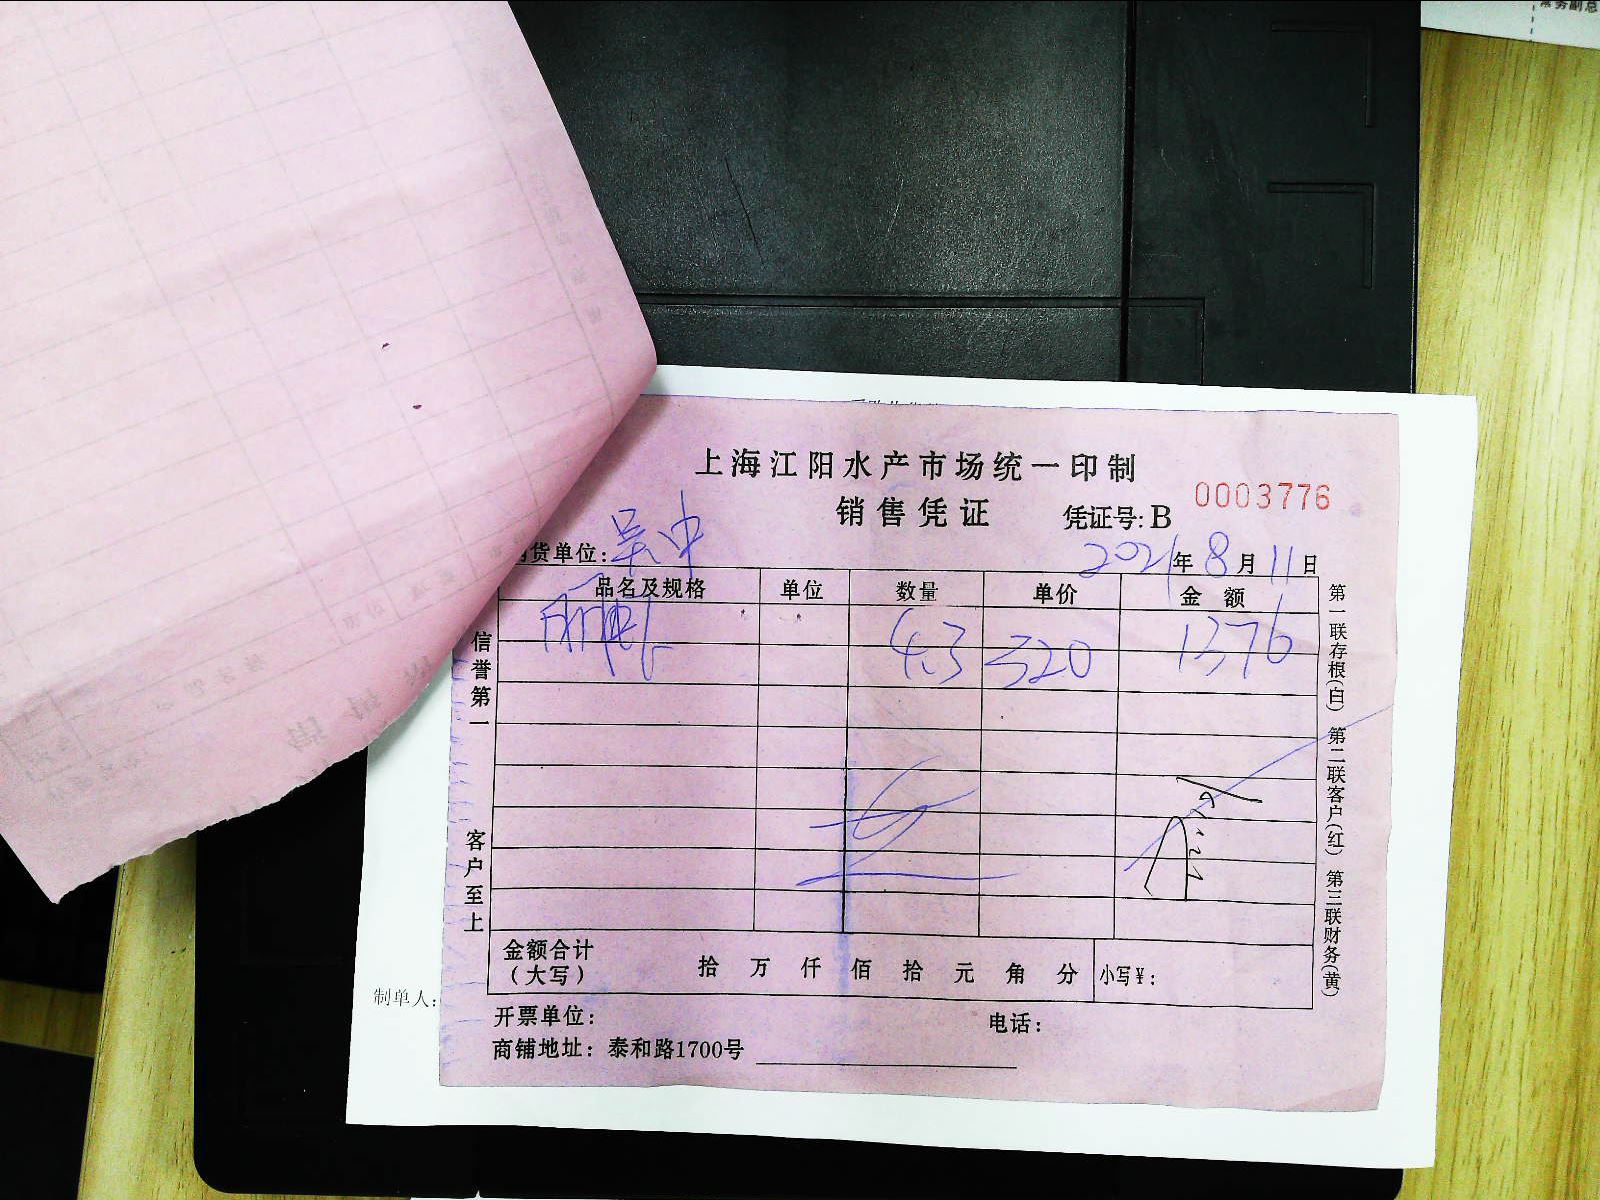 常务副总
上海江阳水产市场统一印制
销售凭证 凭证号:B 0003776
货单位:吴中 2021年8月11日
品名及规格 单位 数量 单价 金额
4.3 320 1376
信誉第一
客户至上
第一联存根(白) 第二联客户(红) 第三联财务(黄)
金额合计
(大写) 拾 万 仟 佰 拾 元 角 分 小写¥:
制单人:
开票单位: 电话:
商铺地址: 泰和路1700号